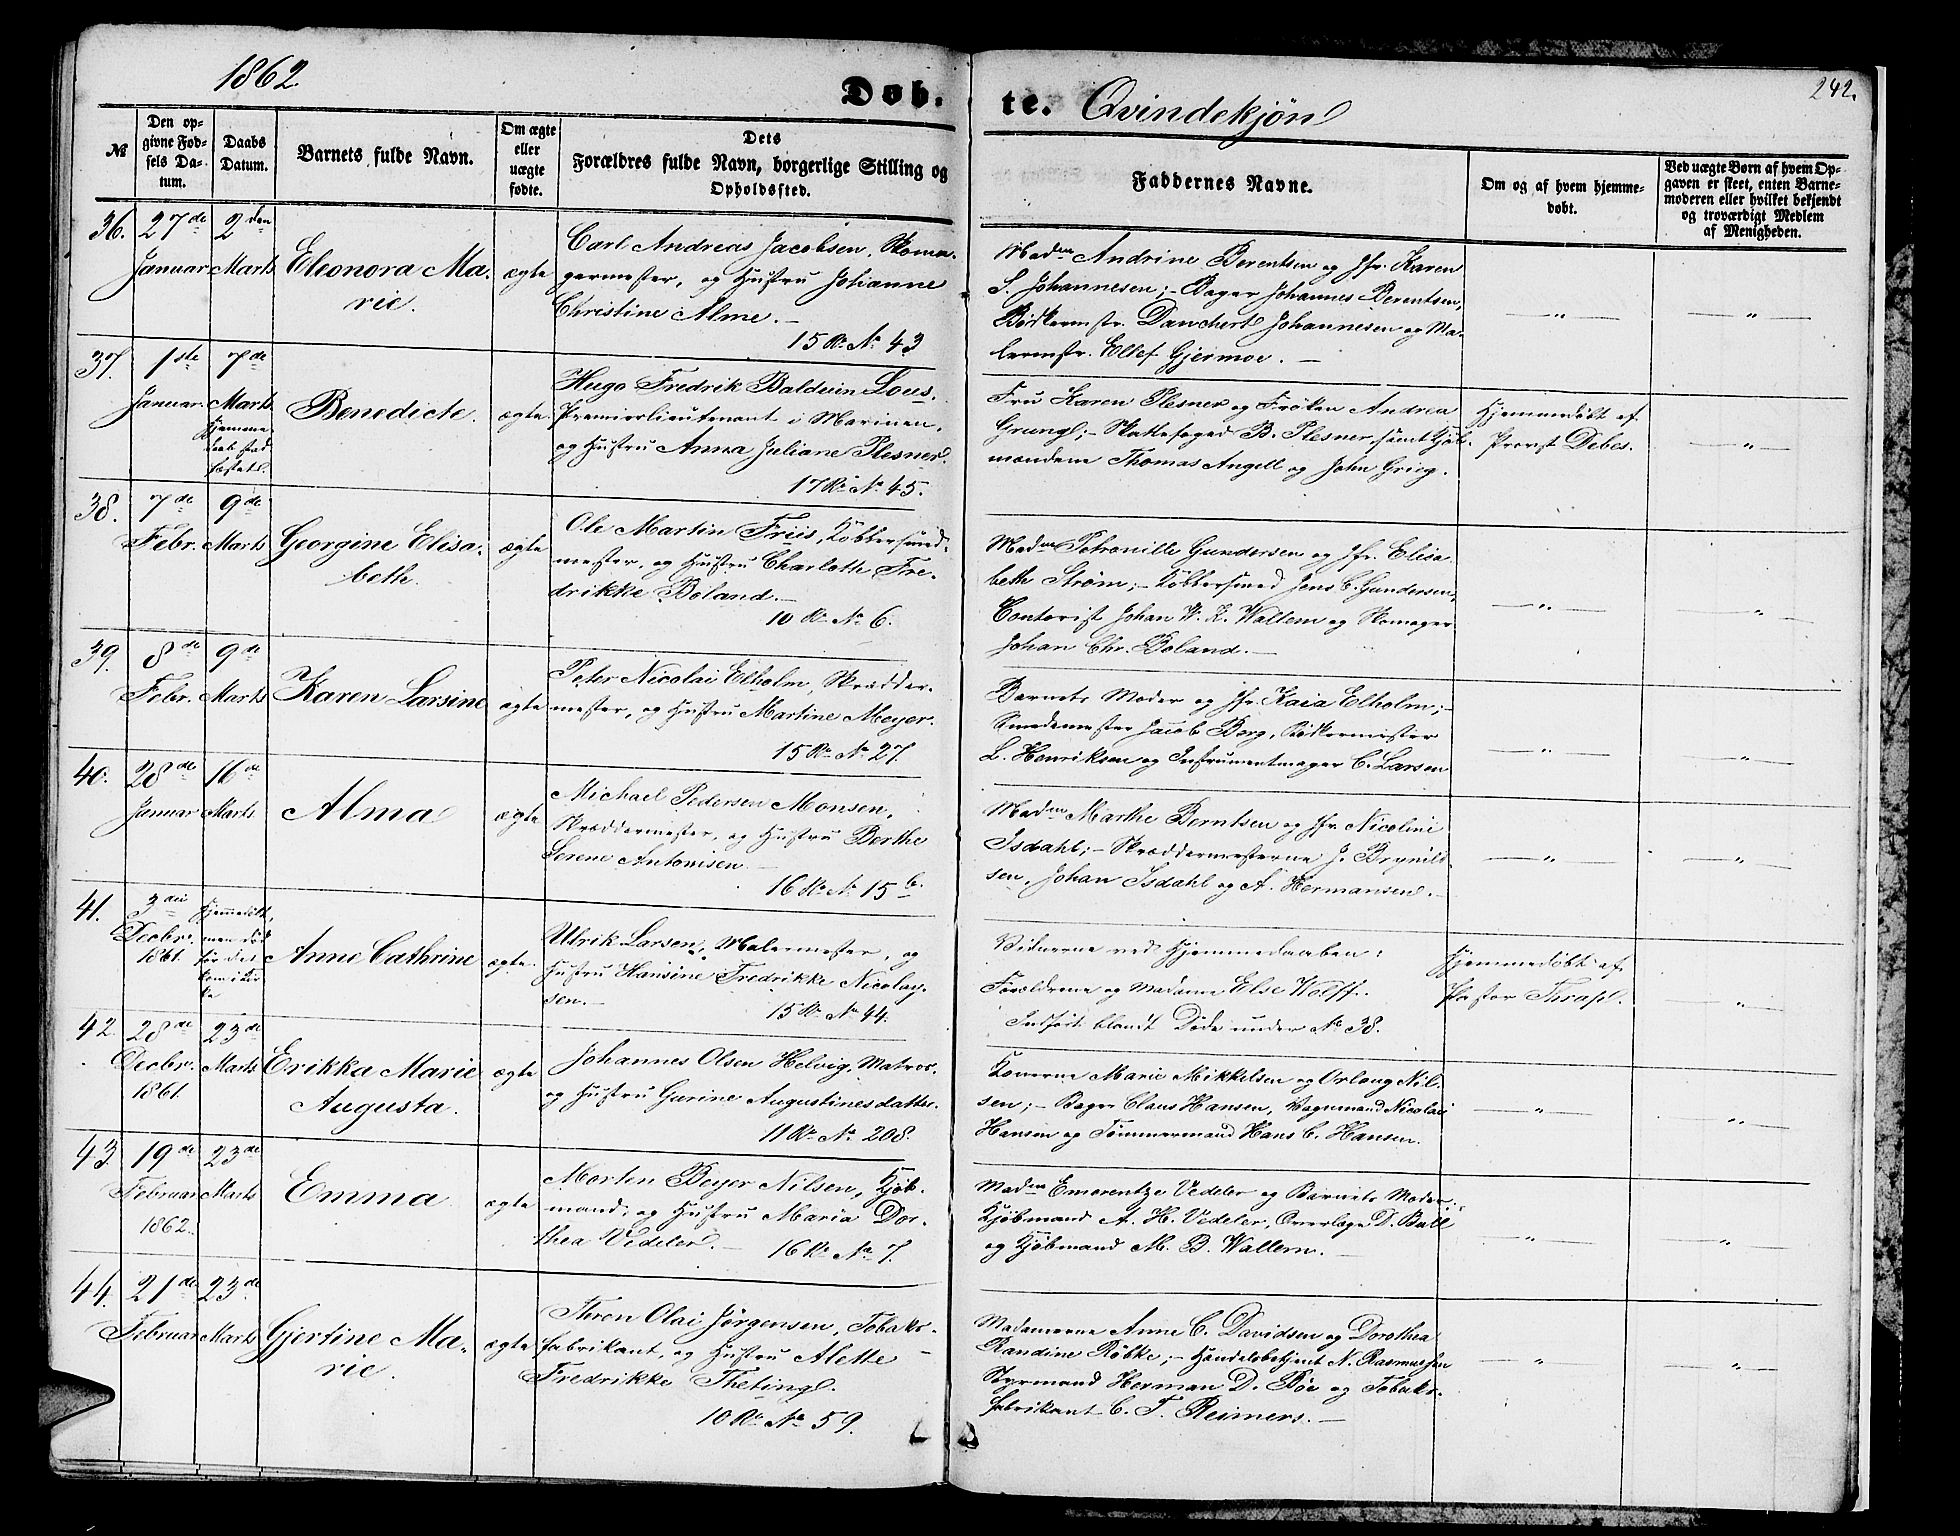 1862.
Døb.
te. Qvindekjøn
242.
№
Den op-
givne Fød-
sels Da-
tum.
Daabs
Datum.
Barnets fulde Navn.
Om ægte
eller
uægte
fødte.
Dets
Forældres fulde Navn, borgerlige Stilling og
Opholdssted.
Faddernes Navne.
Om og af hvem hjemme-
døbt.
Ved uægte Børn af hvem Op-
gaven er skeet, enten Barne-
moderen eller hvilket bekjendt
og troværdigt Medlem
af Menigheden.
36. 27de Januar 2den Marts
Eleonora Ma-
rie.
ægte
Carl Andreas Jacobsen, Skoma-
germester, og Hustru Johanne
Christine Alme.
15 R. No 43
Madm Andrine Berentsen og Jfr. Karen
S. Johannesen; Bager Johannes Berentsen,
Bødkermstr. Danchert Johannesen og Ma-
lermstr. Ellef Gjermoe.
37. 1ste Januar. 7de Marts
Hjemme-
daab stad-
fæstet.
Benedicte.
ægte
Hugo Fredrik Balduin Lous.
Premierlieutenant i Marinen,
og Hustru Anna Juliane Plesner.
17 R. No 45.
Fru Karen Plesner og Frøken Andrea
Grung; Skattefoged B. Plesner, samt Kjøb-
mændene Thomas Angell og John Grieg.
Hjemmedøbt af
Provst Debes.
38. 7de Febr. 9de Marts
Georgine Elisa-
beth.
ægte
Ole Martin Friis, Kobbersmed-
mester, og Hustru Charloth Fre-
drikke Boland.
10 R. No 6.
Madm Petronille Gundersen og Jfr. Elisa-
beth Strøm; Kobbersmed Jens C. Gundersen,
Contorist Johan W. K. Wallem og Skomager
Johan Chr. Boland.
39. 8de Febr. 9de Marts
Karen Larsine
ægte
Peter Nicolai Elholm, Skrædder-
mester, og Hustru Martine Meyer.
15 R. No 27.
Barnets Moder og Jfr. Kaia Elholm;
Smedemester Jacob Berg, Bødkermester
L. Henriksen og Instrumentmager C. Larsen
40. 28de Januar 16de Marts
Alma
ægte
Michael Pedersen Monsen,
Skræddermester, og Hustru Berthe
Serene Antonisen.
16 R. No 15 b.
Madm Marthe Berntsen og Jfr. Nicoline
Isdahl; Skræddermesterne J. Brynild-
sen, Johan Isdahl og A. Hermansen.
41. 3die Decbr. 1861.
Hjemmedøbt,
men død
før det
kom i Kir-
ke
Anne Cathrine
ægte
Ulrik Larsen, Malermester, og
Hustru Hansine Fredrikke Nicolay-
sen.
15 R. No 44.
Vidnerne ved Hjemmedaaben:
Forældrene og Madame Else Wolff.
Indført blandt Døde under No 38.
Hjemmedøbt af
Pastor Thrap.
42. 28de Decbr. 1861. 23de Marts
Erikka Marie
Augusta.
ægte
Johannes Olsen Helvig, Matros
og Hustru Gurine Augustinesdatter.
11 R. No 208.
Konerne Marie Mikkelsen og Orloug Nil-
sen; Bager Claus Hansen, Vognmand Nicolai
Hansen og Tømmermand Hans C. Hansen.
43. 19de Februar 1862. 23de Marts
Emma
ægte
Morten Beyer Nilsen, Kjøb-
mand, og Hustru Maria Dor-
thea Vedeler.
16 R. No 7.
Madm Emerentze Vedeler og Barnets Moder;
Kjøbmand A. H. Vedeler, Overlæge D. Bull
og Kjøbmand M. B. Wallem.
44. 21de Februar 23de Marts
Gjertine Ma-
rie.
ægte
Thron Olai Jørgensen, Tobaks-
fabrikant, og Hustru Alette
Fredrikke Theting.
10 R. No 59.
Madamerne Anne C. Davidsen og Dorothea
Randine Röbke; Handelsbetjent N. Rasmussen
Styrmand Herman D. Bøe og Tobaks-
fabrikant C. T. Reimers.